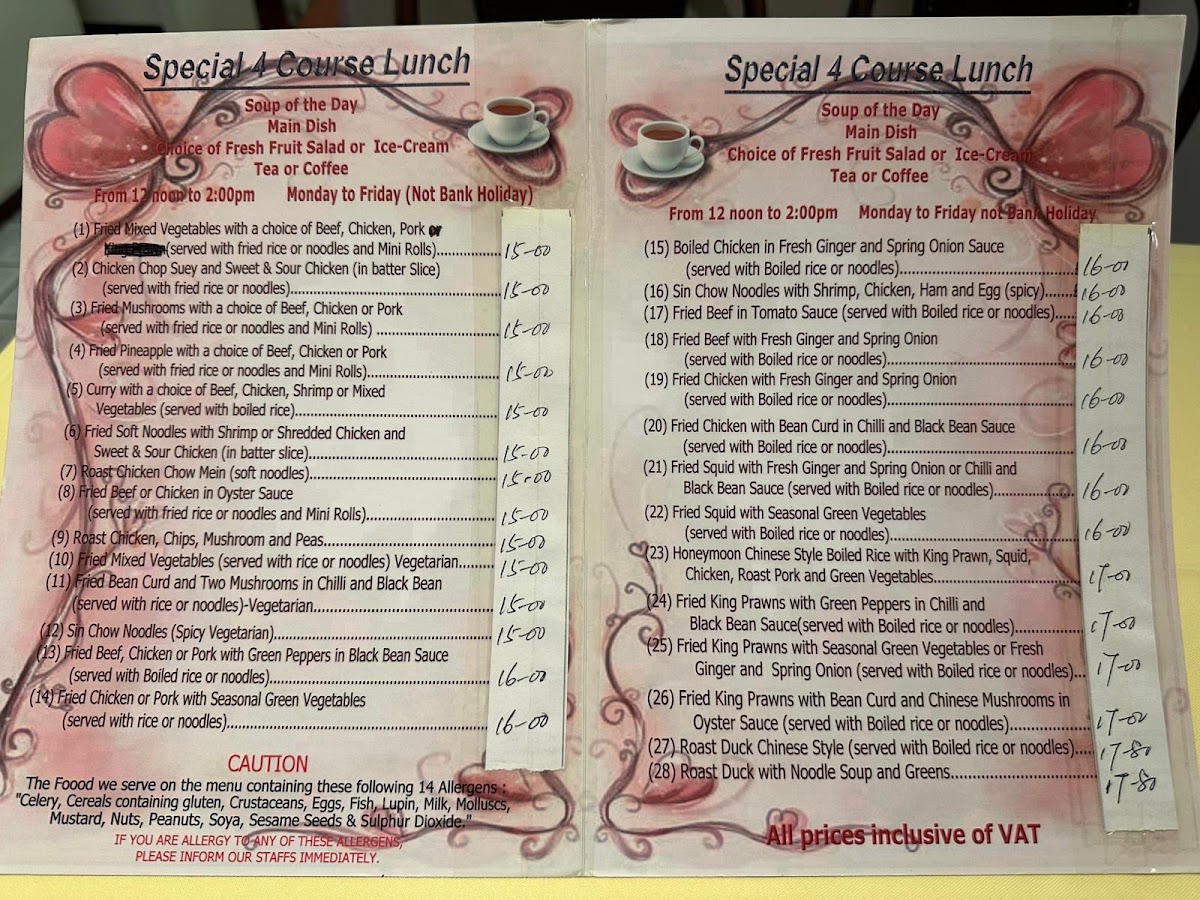 Special 4 Course Lunch
Soup of the Day
Main Dish
Choice of Fresh Fruit Salad or Ice-Cream
Tea or Coffee
From 12 noon to 2:00pm Monday to Friday (Not Bank Holiday)
(1) Fried Mixed Vegetables with a choice of Beef, Chicken, Pork or
(served with fried rice or noodles and Mini Rolls)................ 15-00
(2) Chicken Chop Suey and Sweet & Sour Chicken (in batter Slice)
(served with fried rice or noodles)................ 15-00
(3) Fried Mushrooms with a choice of Beef, Chicken or Pork
(served with fried rice or noodles and Mini Rolls) ................ 15-00
(4) Fried Pineapple with a choice of Beef, Chicken or Pork
(served with fried rice or noodles and Mini Rolls)................ 15-00
(5) Curry with a choice of Beef, Chicken, Shrimp or Mixed
Vegetables (served with boiled rice)................ 15-00
(6) Fried Soft Noodles with Shrimp or Shredded Chicken and
Sweet & Sour Chicken (in batter slice)................ 15-00
(7) Roast Chicken Chow Mein (soft noodles)................ 15-00
(8) Fried Beef or Chicken in Oyster Sauce
(served with fried rice or noodles and Mini Rolls)................ 15-00
(9) Roast Chicken, Chips, Mushroom and Peas................ 15-00
(10) Fried Mixed Vegetables (served with rice or noodles) Vegetarian........ 15-00
(11) Fried Bean Curd and Two Mushrooms in Chilli and Black Bean
(served with rice or noodles)-Vegetarian................ 15-00
(12) Sin Chow Noodles (Spicy Vegetarian)................ 15-00
(13) Fried Beef, Chicken or Pork with Green Peppers in Black Bean Sauce
(served with Boiled rice or noodles)................ 16-00
(14) Fried Chicken or Pork with Seasonal Green Vegetables
(served with rice or noodles)................ 16-00
CAUTION
The Foood we serve on the menu containing these following 14 Allergens :
"Celery, Cereals containing gluten, Crustaceans, Eggs, Fish, Lupin, Milk, Molluscs,
Mustard, Nuts, Peanuts, Soya, Sesame Seeds & Sulphur Dioxide."
IF YOU ARE ALLERGY TO ANY OF THESE ALLERGENS,
PLEASE INFORM OUR STAFFS IMMEDIATELY.
Special 4 Course Lunch
Soup of the Day
Main Dish
Choice of Fresh Fruit Salad or Ice-Cream
Tea or Coffee
From 12 noon to 2:00pm Monday to Friday not Bank Holiday
(15) Boiled Chicken in Fresh Ginger and Spring Onion Sauce
(served with Boiled rice or noodles)................ 16-00
(16) Sin Chow Noodles with Shrimp, Chicken, Ham and Egg (spicy)....... 16-00
(17) Fried Beef in Tomato Sauce (served with Boiled rice or noodles).... 16-00
(18) Fried Beef with Fresh Ginger and Spring Onion
(served with Boiled rice or noodles)................ 16-00
(19) Fried Chicken with Fresh Ginger and Spring Onion
(served with Boiled rice or noodles)................ 16-00
(20) Fried Chicken with Bean Curd in Chilli and Black Bean Sauce
(served with Boiled rice or noodles)................ 16-00
(21) Fried Squid with Fresh Ginger and Spring Onion or Chilli and
Black Bean Sauce (served with Boiled rice or noodles)................ 16-00
(22) Fried Squid with Seasonal Green Vegetables
(served with Boiled rice or noodles)................ 16-00
(23) Honeymoon Chinese Style Boiled Rice with King Prawn, Squid,
Chicken, Roast Pork and Green Vegetables................ 17-00
(24) Fried King Prawns with Green Peppers in Chilli and
Black Bean Sauce(served with Boiled rice or noodles)................ 17-00
(25) Fried King Prawns with Seasonal Green Vegetables or Fresh
Ginger and Spring Onion (served with Boiled rice or noodles)... 17-00
(26) Fried King Prawns with Bean Curd and Chinese Mushrooms in
Oyster Sauce (served with Boiled rice or noodles)................ 17-00
(27) Roast Duck Chinese Style (served with Boiled rice or noodles)..... 17-80
(28) Roast Duck with Noodle Soup and Greens................ 17-80
All prices inclusive of VAT